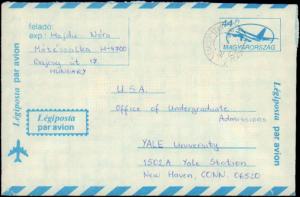 feladó:
exp: Hajdu Nóra
Mátészalka H-4700
út 17
HUNGARY
44Ft
MAGYARORSZÁG
Légiposta par avion
Légiposta
par avion
U.S.A.
Office of Undergraduate
Admissions
YALE University
1502A Yale Station
New Haven, CONN. 06520
Légiposta par avion